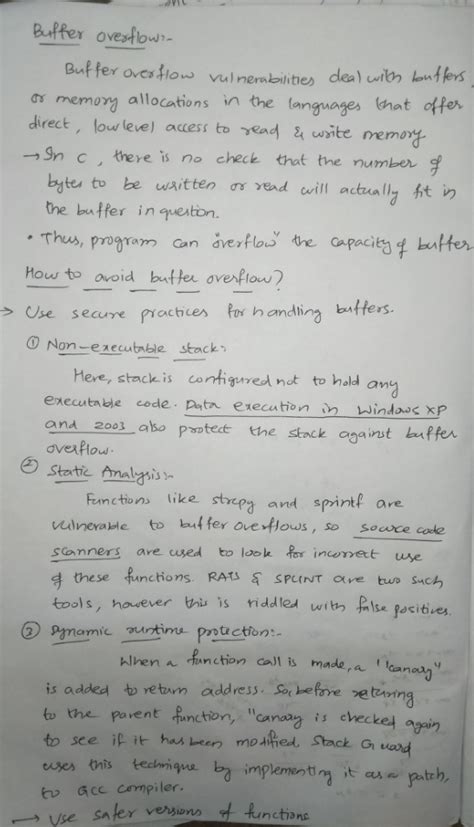 Buffer overflow:-
Buffer overflow vulnerabilities deal with buffers
or memory allocations in the languages that offer
direct, low level access to read & write memory
→ In C, there is no check that the number of
bytes to be written or read will actually fit in
the buffer in question.
• Thus, program can "overflow" the capacity of buffer
How to avoid buffer overflow?
→ Use secure practices for handling buffers.
① Non-executable stack:
Here, stack is configured not to hold any
executable code. Data execution in Windows XP
and 2003 also protect the stack against buffer
overflow.
② Static Analysis:-
Functions like strcpy and sprintf are
vulnerable to buffer overflows, so source code
scanners are used to look for incorrect use
of these functions. RATS & SPLINT are two such
tools, however this is riddled with false positives.
③ Dynamic runtime protection:-
When a function call is made, a "canary"
is added to return address. So, before returing
to the parent function, "canary is checked again
to see if it has been modified. Stack Guard
uses this technique by implementing it as a patch,
to gcc compiler.
→ Use safer versions of functions